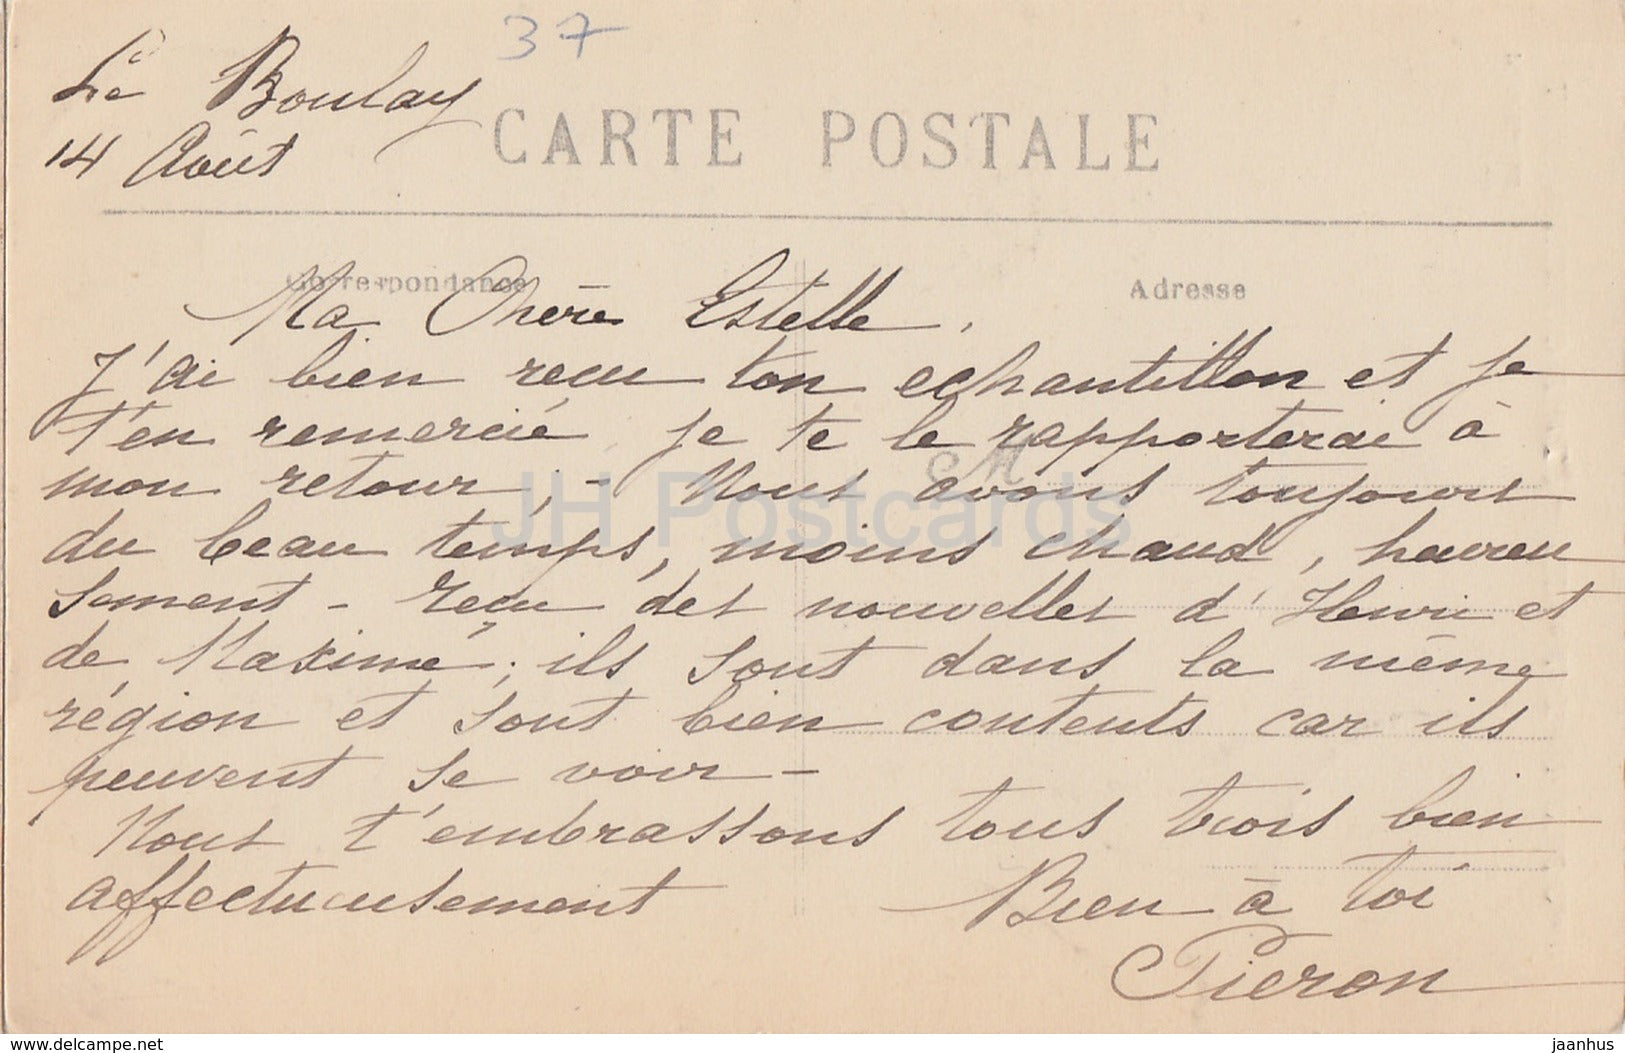 37
Le Boulay
14 Août
CARTE POSTALE
Correspondance
Adresse
Ma Chère Estelle,
J'ai bien reçu ton echantillon et je
t'en remercie je te le rapporterai à
mon retour ; - Nous avons toujours
du beau temps, moins chaud, heureu
sement - reçu des nouvelles d'Henri et
de Maxime, ils sont dans la même
région et sont bien contents car ils
peuvent se voir -
Nous t'embrassons tous trois bien
affectueusement Bien à toi
Pieron
M
JH Postcards
www.delcampe.net
jaanhus